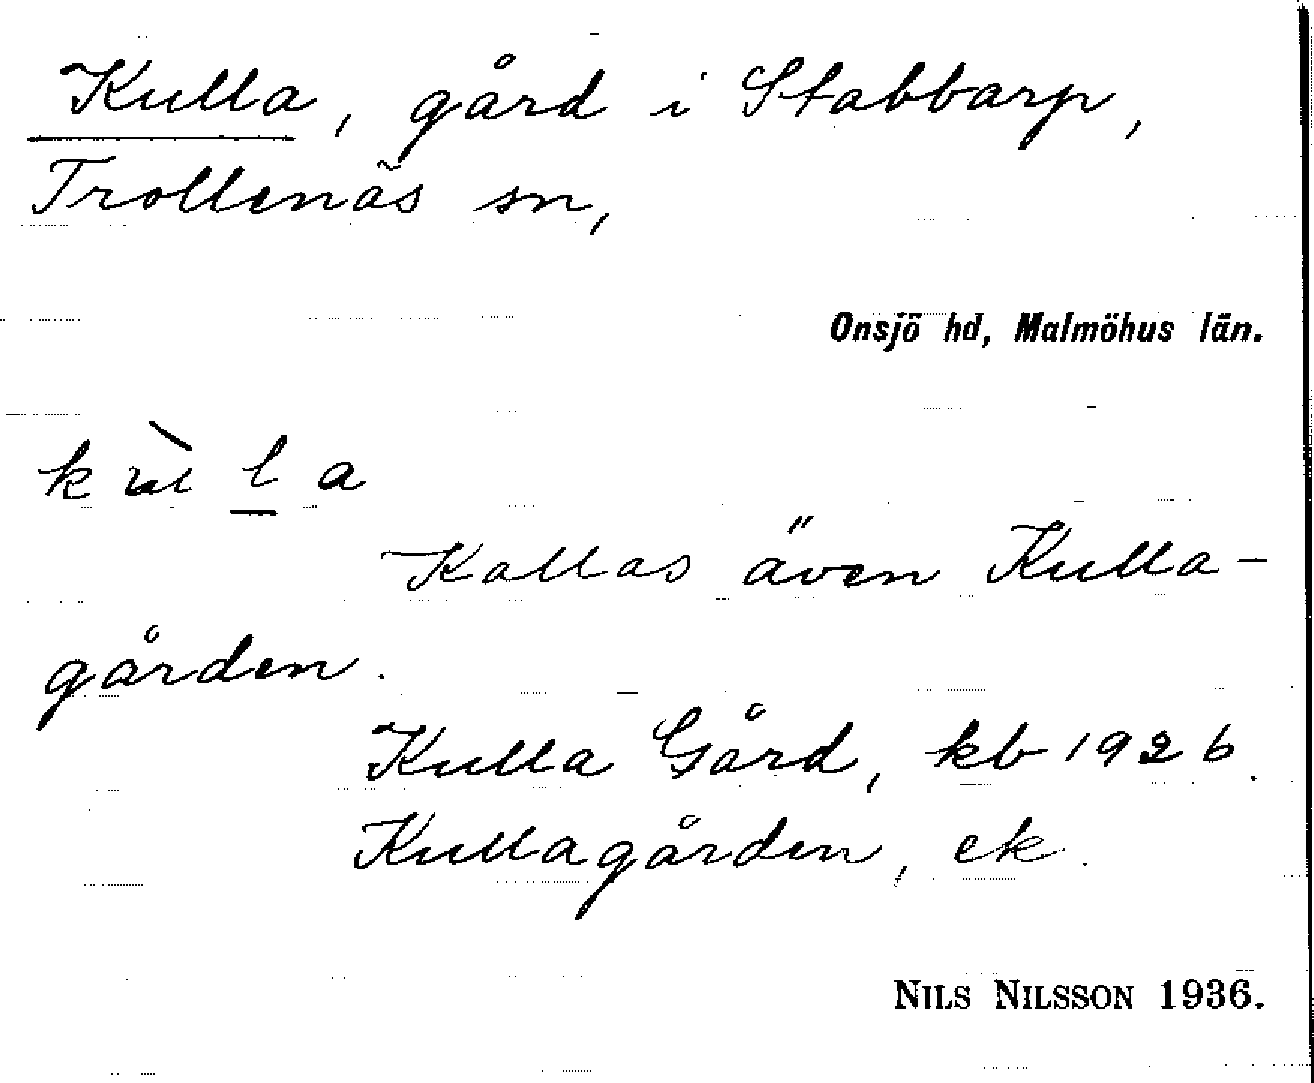 Kulla, gård i Stabbarp,
Trollenäs sn,
Onsjö hd, Malmöhus län.
Kallas även Kulla-
gården.
Kulla Gård, kb 1926.
Kullagården, ek.
NILS NILSSON 1936.